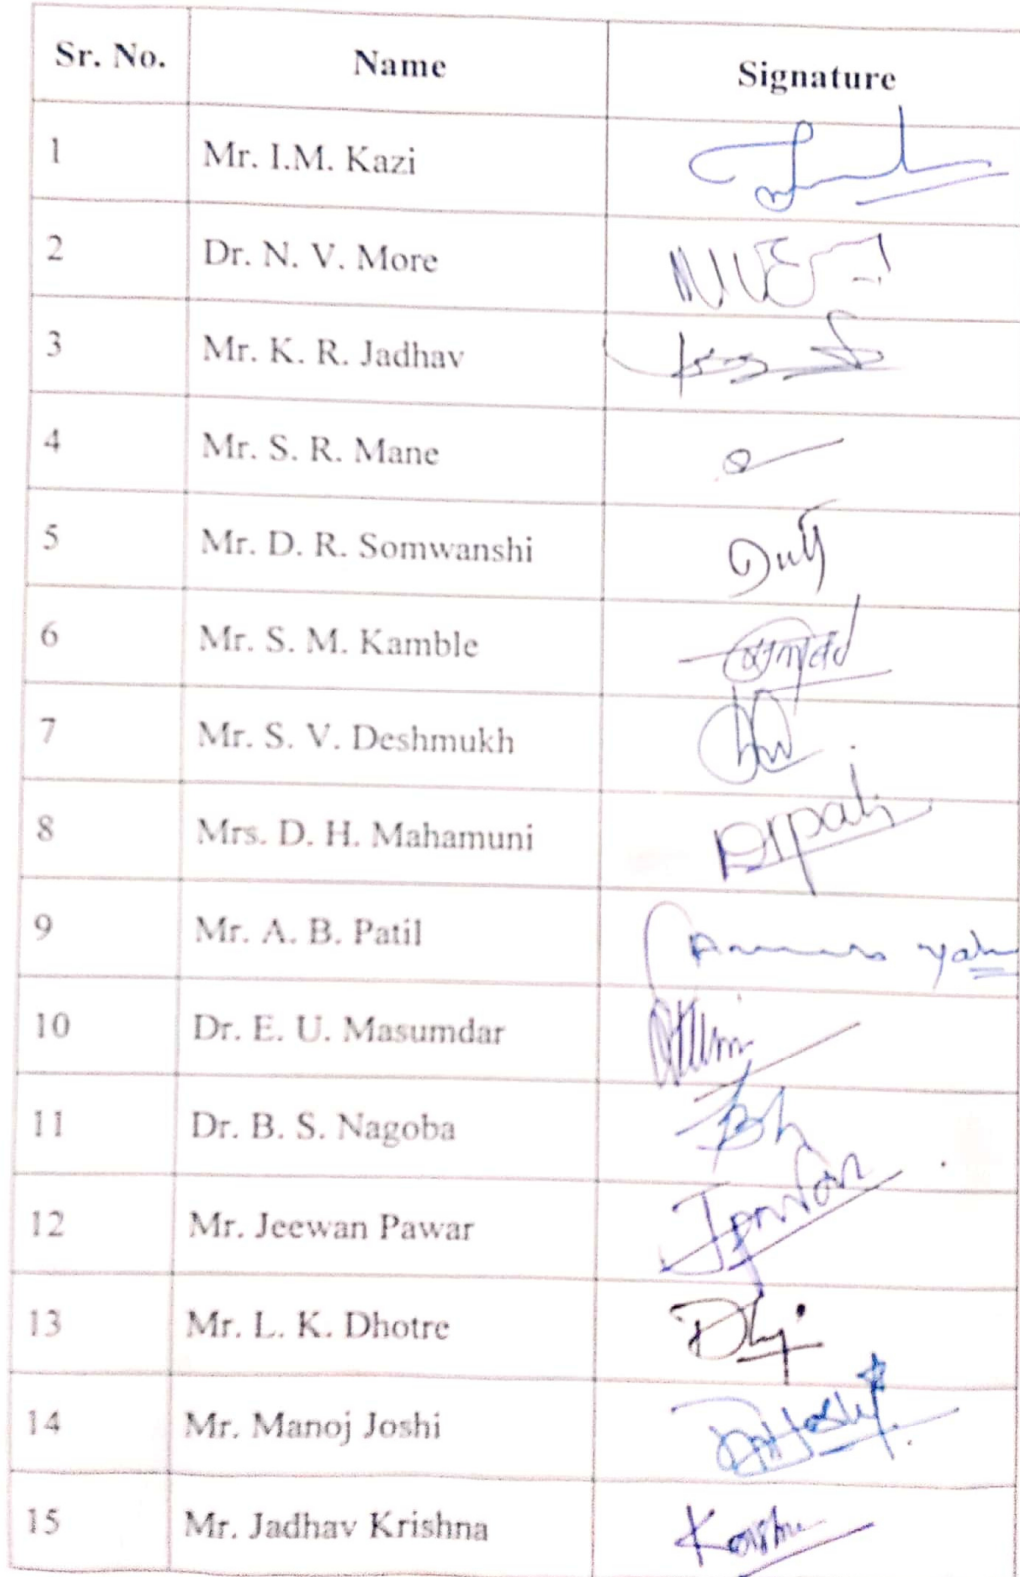 Sr. No. Name Signature
1 Mr. I.M. Kazi
2 Dr. N. V. More
3 Mr. K. R. Jadhav
4 Mr. S. R. Mane
5 Mr. D. R. Somwanshi
6 Mr. S. M. Kamble
7 Mr. S. V. Deshmukh
8 Mrs. D. H. Mahamuni
9 Mr. A. B. Patil
10 Dr. E. U. Masumdar
11 Dr. B. S. Nagoba
12 Mr. Jeewan Pawar
13 Mr. L. K. Dhotre
14 Mr. Manoj Joshi
15 Mr. Jadhav Krishna